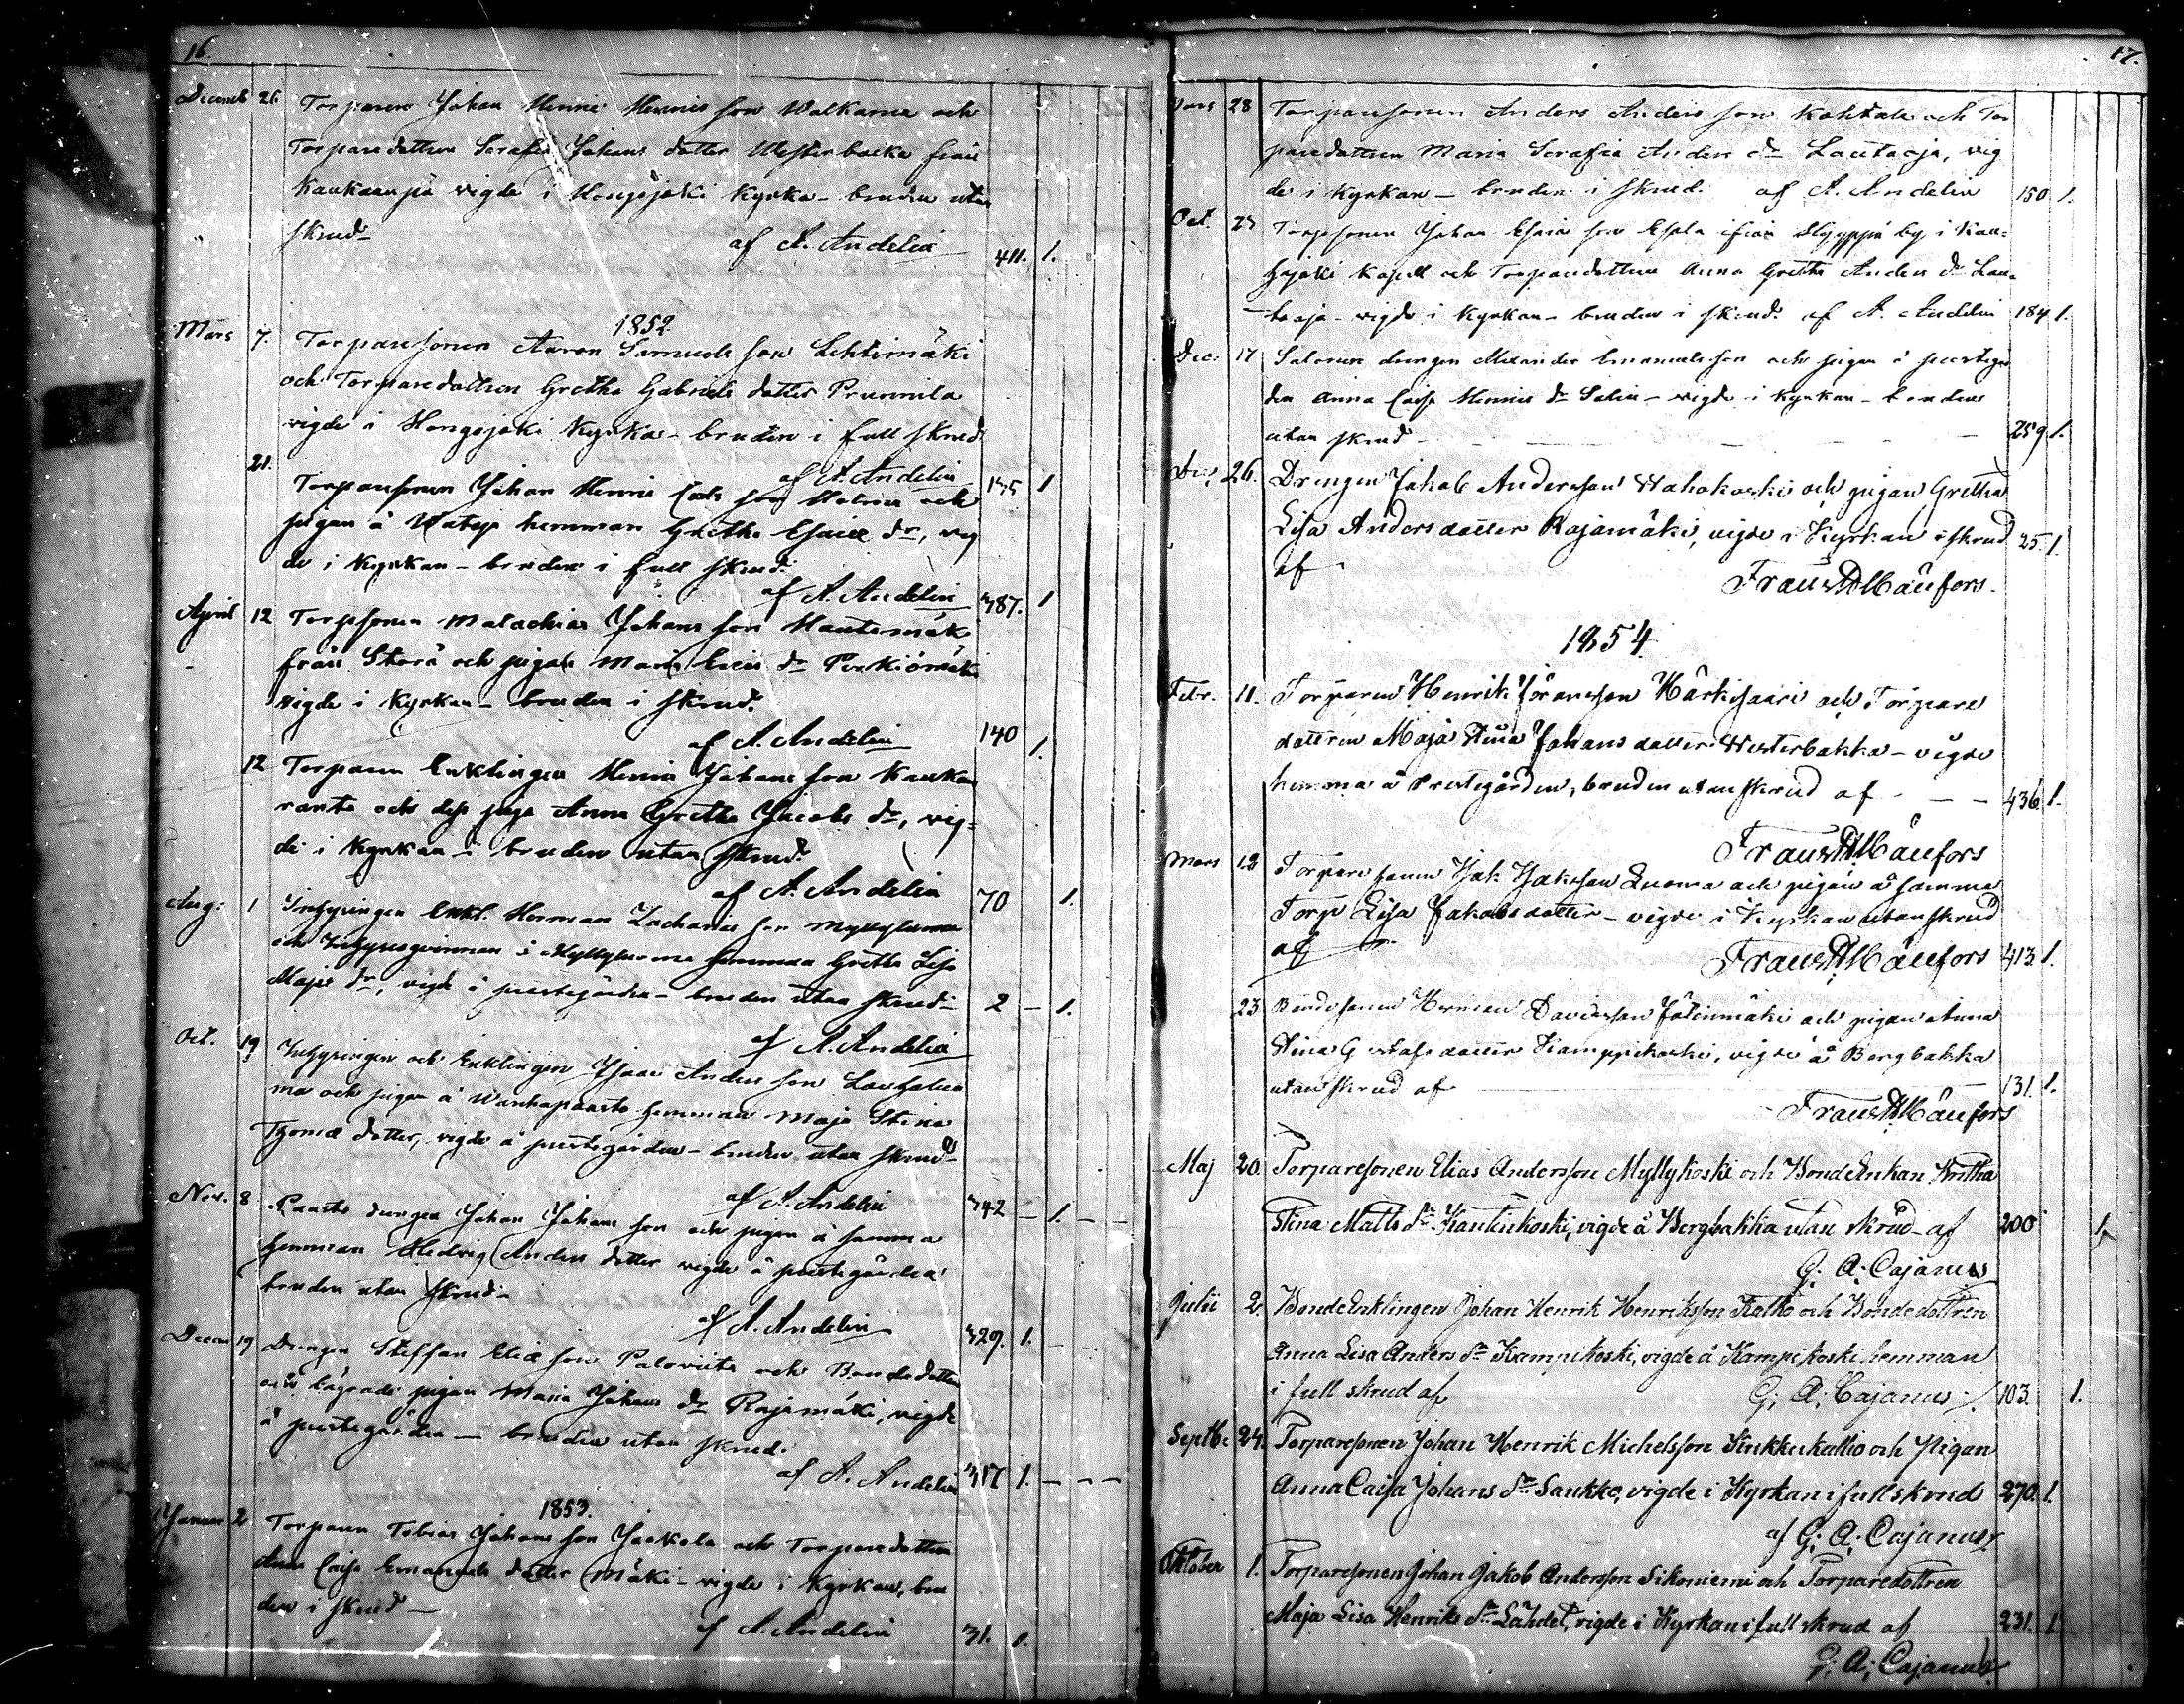 16.
Decemb 26 Torparen Johan Henric Henrics son Walkama och
Torparedottren Serafia Johans dotter Westerbacka från
Kankaanpä vigde i Hongojoki Kyrka - bruden utan
skrud - af A. Andelin 411. 1.
1852.
Mars 7. Torparesonen Aaron Samuels son Lehtimäki
och Torparedottren Gretha Gabriels dotter Prunnila
vigde i Hongojoki Kyrka - bruden i full skrud
af A. Andelin 135 1
21. Torparesonen Johan Henric son Holma och
pigan å hemman Gretha Esaiæ dr, vig
de i Kyrkan - bruden i full skrud.
af A. Andelin 387. 1
April 12 Torpsonen Malachias Johans son Hautamäk
från Storå och pigan Maria Erics dr Perkiömäki
vigde i Kyrkan - bruden i skrud.
af A. Andelin 140 1.
12 Torparen Enklingen Henric Johans son Kaukan
ranta och dess piga Anna Gretha Jacobs dr, vig=
de i Kyrkan - bruden utan skrud.
af A. Andelin 70 1.
Aug: 1 Inhysingen Enkl. Herman Zacharias son Myllyluoma
och Inhysesqvinnan i Myllyluoma hemman Gretha Lisa
Majas dr, vigde i prestegården - bruden utan skrud - 2 - 1.
af A. Andelin
Oct. 19 Inhysingen och Enklingen Isaac Anders son Lauhaluo
ma och pigan å Wanhapaasto hemman Maja Stina
Thomæ dotter, vigde å prestegården - bruden utan skrud -
af A. Andelin 342 - 1. - -
Nov. 8 Paasto drengen Johan Johans son och pigan å samma
hemman Hedvig Anders dotter vigde å prestegården
bruden utan skrud -
af A. Andelin 329. 1. - -
Decem 19 Drengen Steffan Eliæ son Palovuita och Bondedottren
och lägrade pigan Maria Johans dr Rajamäki, vigde
å prestegården - bruden utan skrud.
af A. Andelin 317 1. - - -
1853.
Januar 2 Torparen Tobias Johans son Jaakola och Torparedottren
Anna Caisa Emanuels dotter Mäki - vigde i Kyrkan, bru
den i skrud -
af A. Andelin 31. 1.
17.
Mars 28 Torparesonen Anders Anders son Kohtala och Tor
paredottren Maria Serafia Anders dr Lautaoja, vig
de i Kyrkan - bruden i skrud. af A. Andelin 150 1.
Oct. 23 Torpsonen Johan Esaiæ son Esala ifrån Nyyppä by i Kau=
hajoki Kapell och Torparedottren Anna Gretha Anders dr Lau=
taoja - vigde i Kyrkan - bruden i skrud. af A. Andelin 184 1.
Dec: 17 Salonen drengen Alexander Emanuels son och pigan å prestegår
den Anna Caisa Henrics dr Salin - vigde i Kyrkan - bruden
utan skrud - 259 1.
Dec: 26. Drengen Jakob Andersson Wahakoski och pigan Gretha
Lisa Andersdotter Rajamäki, vigde i Kyrkan i skrud 25. 1.
af
Frans H Månfors.
1854
Febr. 11. Torparen Henrik Göransson Härkisaari och Torpare
dottren Maja Stina Johansdotter Westerbakka - vigde
hemma å Prestegården, bruden utan skrud af - - - 436 1.
Frans H Månfors
Mars 12 Torparesonen Jak Jaksson Luoma och pigan å samma
Torp Lisa Jakobsdotter - vigde i Kyrkan utan skrud
af Frans H Månfors 413 1.
23 Bondesonen Herman Davidsson Jätinmäki och pigan Anna
Stina Gustafsdotter Kamppikoski, vigde å Bergbakka
utan skrud af 131. 1.
Frans H Månfors
Maj 20. Torparesonen Elias Andersson Myllykoski och Bonde Enkan Gretha
Stina Matts dr Kantinkoski, vigde å Bergbakka utan skrud - af 200 1
G. A. Cajanus
Julii 2. Bonde Enklingen Johan Henrik Henriksson Katko och Bondedottren
Anna Lisa Anders dr Kampikoski, vigde å Kampikoski hemman
i full skrud af G. A. Cajanus 103. 1.
Septb: 24. Torparesonen Johan Henrik Michelsson Kukkukallio och Pigan
Anna Caisa Johans dr Saukko, vigde i Kyrkan i full skrud 270. 1.
af G. A. Cajanus
Oktober 1. Torparesonen Johan Jakob Andersson Sikoniemi och Torparedottren
Maja Lisa Henriks dr Lähdet, vigde i Kyrkan i full skrud af 231. 1
G. A. Cajanus